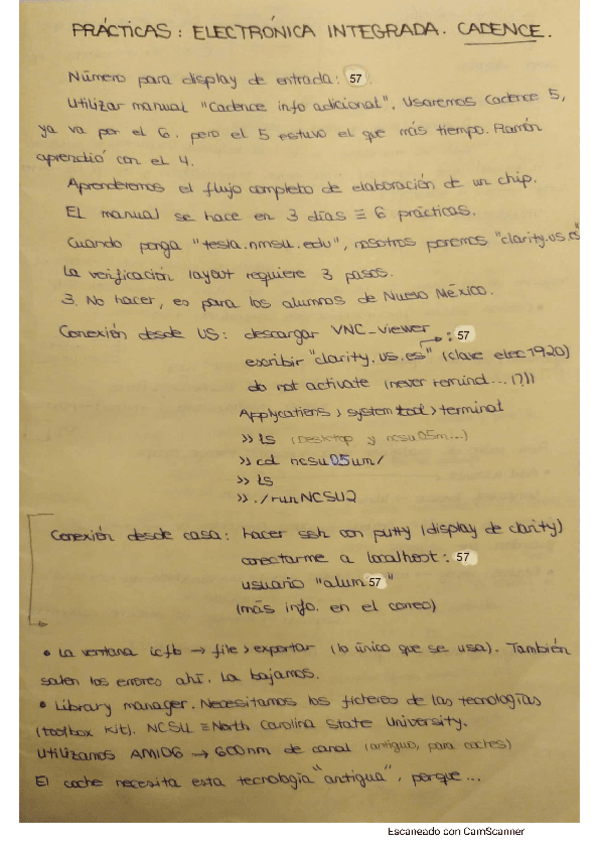 PRÁCTICAS: ELECTRÓNICA INTEGRADA. CADENCE.
Número para display de entrada: 57
Utilizar manual "Cadence info adicional". Usaremos Cadence 5,
ya va por el 6, pero el 5 estuvo el que más tiempo. Ramón
aprendió con el 4.
Aprenderemos el flujo completo de elaboración de un chip.
EL manual se hace en 3 días ≡ 6 prácticas.
Cuando ponga "tesla.nmsu.edu", nosotros ponemos "clarity.us.es"
La verificación layout requiere 3 pasos.
3. No hacer, es para los alumnos de Nuevo México.
Conexión desde US: descargar VNC_viewer
escribir "clarity.us.es" (clave elec1920) : 57
do not activate (never remind...!?!)
Applycatiens > system tool > terminal
>> ls (desktop y ncsu05m...)
>> cd ncsu05um/
>> ls
>> ./runNCSU2
Conexión desde casa: hacer ssh con putty (display de clarity)
conectarme a localhost: 57
usuario "alum57"
(más info. en el correo)
• La ventana icfb → file > exportar (lo único que se usa). También
salen los errores ahí. La bajamos.
• Library manager. Necesitamos los ficheros de las tecnologías
(toolbox kit). NCSU ≡ North Carolina State University.
Utilizamos AMI06 → 600nm de canal (antiguo, para coches)
El coche necesita esta tecnología "antigua", porque...
Escaneado con CamScanner